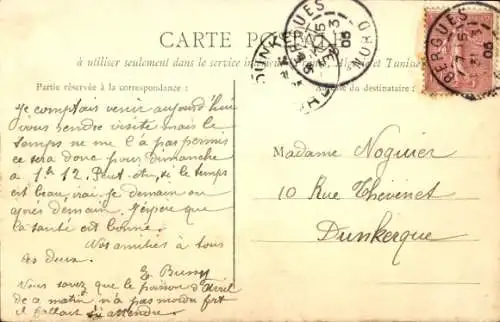 CARTE POSTALE
à utiliser seulement dans le service intérieur Algérie et Tunisie
Partie réservée à la correspondance :
Adresse du destinataire :
BERGUES
NORD
15
3
05
DUNKE
BERGUES
15
3
05
NORD
Je comptais venir aujourd'hui
vous rendre visite mais le
temps ne me l'a pas permis
ce sera donc pour Dimanche
à 1h 12. Peut-être, si le temps
est beau, irai-je demain ou
après demain. J'espère que
la santé est bonne.
Nos amitiés à tous
les deux.
Vous savez que le poisson d'Avril
de ce matin n'a pas mordu fort
il fallait s'y attendre.
Madame Noguier
10 Rue Thévenet
Dunkerque